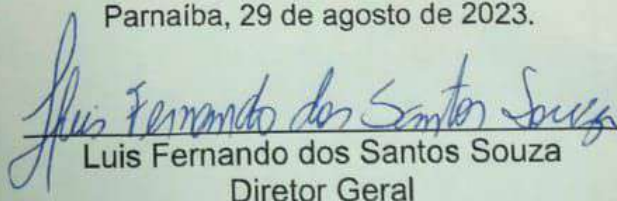 Parnaíba, 29 de agosto de 2023.
Luis Fernando dos Santos Souza
Luis Fernando dos Santos Souza
Diretor Geral